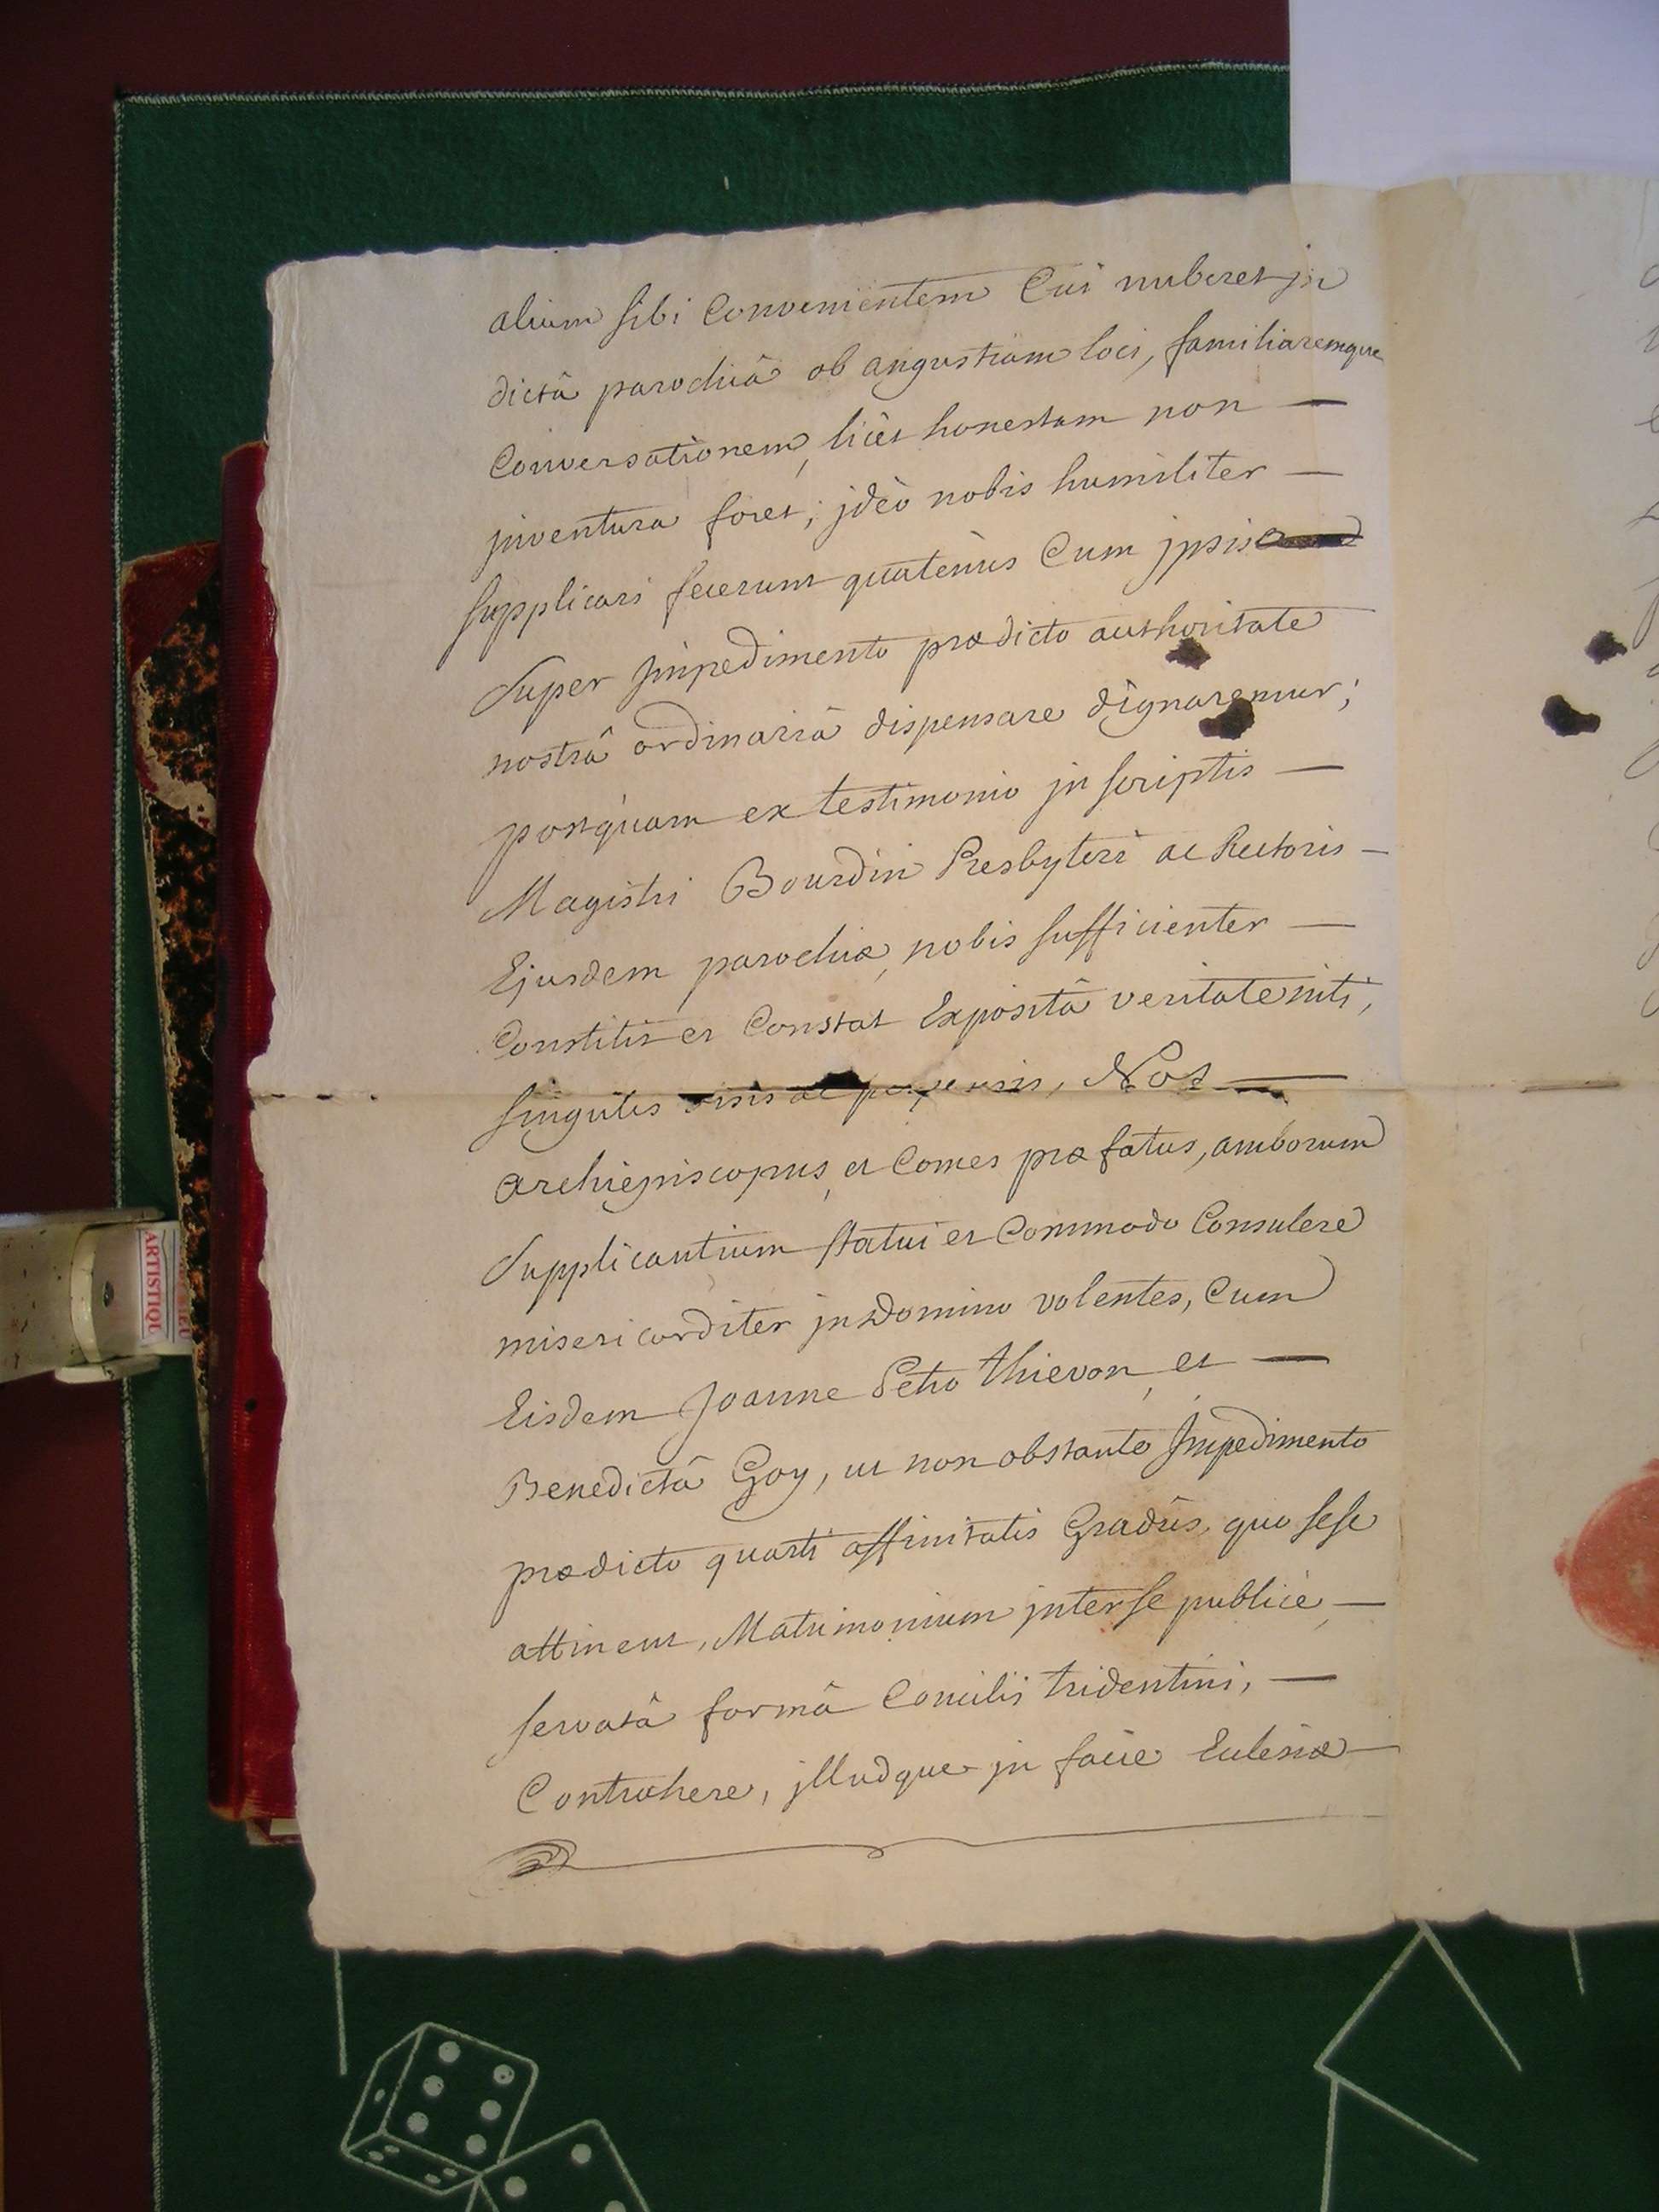 alium sibi Convenientem Cui nuberet in
dictâ parochiâ ob angustiam loci, familiaremque
Conversationem, licèt honestam non —
jnventura foret; jdèo nobis humiliter —
supplicari fecerunt quatenùs Cum jpsis
super Jmpedimento prædicto authoritate
nostrâ ordinariâ dispensare dignaremur;
postquam ex testimonio jn scriptis —
Magistri Bourdin Presbyteri ac Rectoris —
Ejusdem parochiæ, nobis sufficienter —
Constitit et Constat Exposita veritate niti,
singulis visis ac perpensis, Nos —
archiepiscopus, et Comes præfatus, amborum
supplicantium statui et Commodo Consulere
misericorditer jn Domino volentes, Cum
Eisdem Joanne Petro thievon, et —
Benedictâ Goy, ut non obstante Jmpedimento
prædicto quarti affinitatis Gradûs, quo sese
attinent, Matrimonium jnter se publicè, —
servatâ formâ Concilii tridentini, —
Contrahere, jlludque jn facie Ecclesiæ —
ARTISTIQU